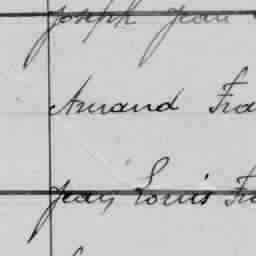 Joseph Jean
Amand Fra
Jean Louis Fra